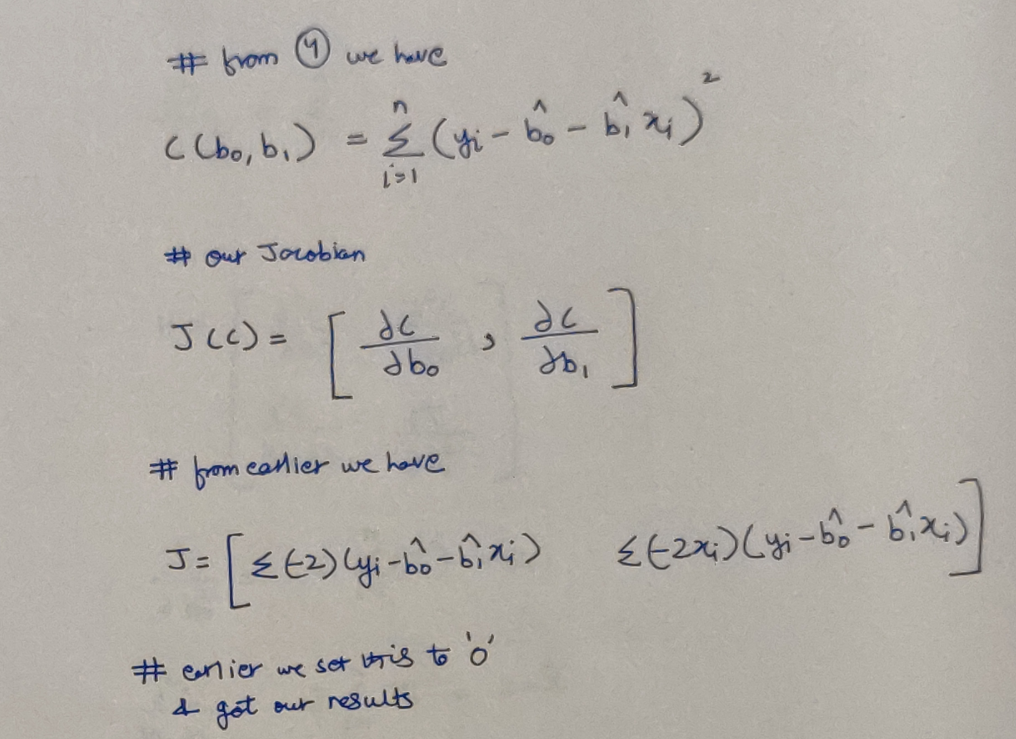 # from ④ we have
C(b₀, b₁) = Σⁿᵢ₌₁ (yᵢ - b̂₀ - b̂₁xᵢ)²
# our Jacobian
J(C) = [ ∂C/∂b₀ , ∂C/∂b₁ ]
# from earlier we have
J = [ Σ(-2)(yᵢ - b̂₀ - b̂₁xᵢ) Σ(-2xᵢ)(yᵢ - b̂₀ - b̂₁xᵢ) ]
# earlier we set this to '0'
& got our results